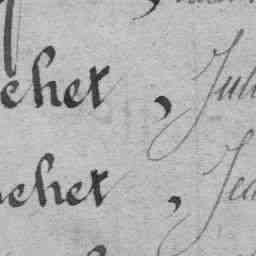 chet, Juli
chet, Jea